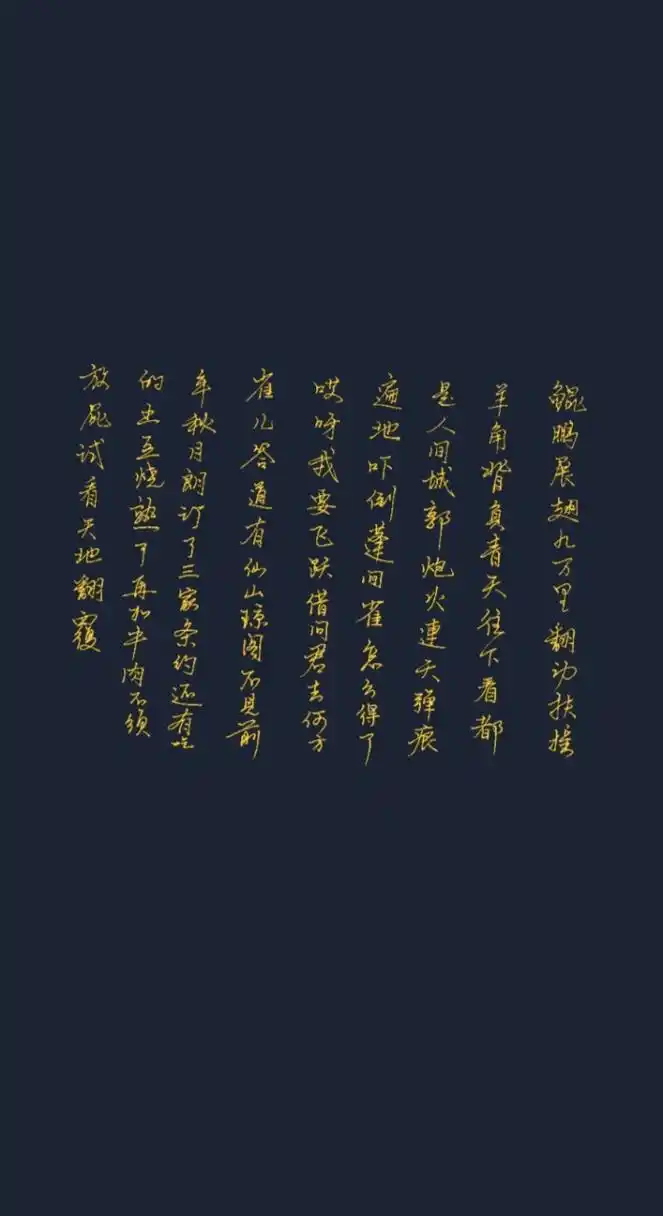 鲲鹏展翅九万里翻动扶摇
羊角背负青天往下看都
是人间城郭炮火連天弹痕
遍地吓倒蓬间雀怎么得了
哎呀我要飞跃借问君去何方
雀儿答道有仙山琼阁不见前
年秋月朗订了三家条约还有吃
的土豆烧熟了再加牛肉不须
放屁试看天地翻覆